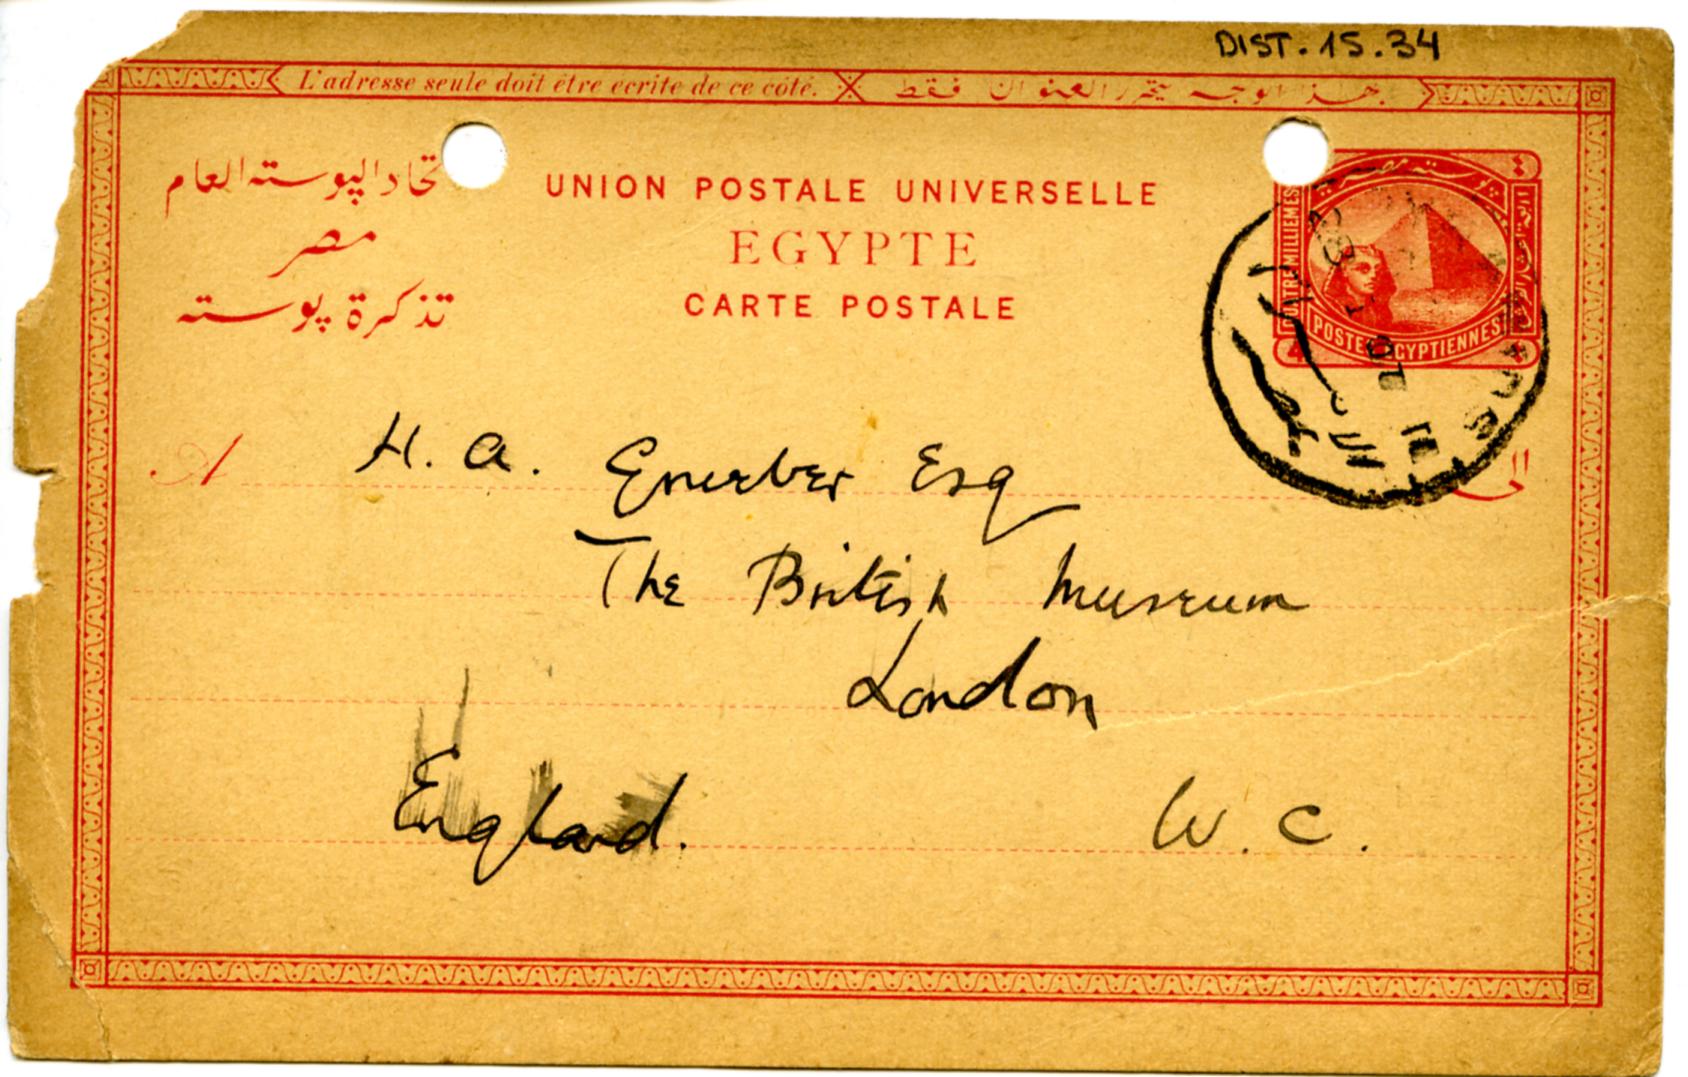 DIST.15.34
L'adresse seule doit être écrite de ce côté. بهذا الوجه يحرر العنوان فقط
اتحاد البوسته العام
مصر
تذكرة بوسته
UNION POSTALE UNIVERSELLE
EGYPTE
CARTE POSTALE
بوسته مصرية
MILLIEMES
POSTES EGYPTIENNES
4
A
الى
H. A. Esq
The British Museum
London
England. W. C.